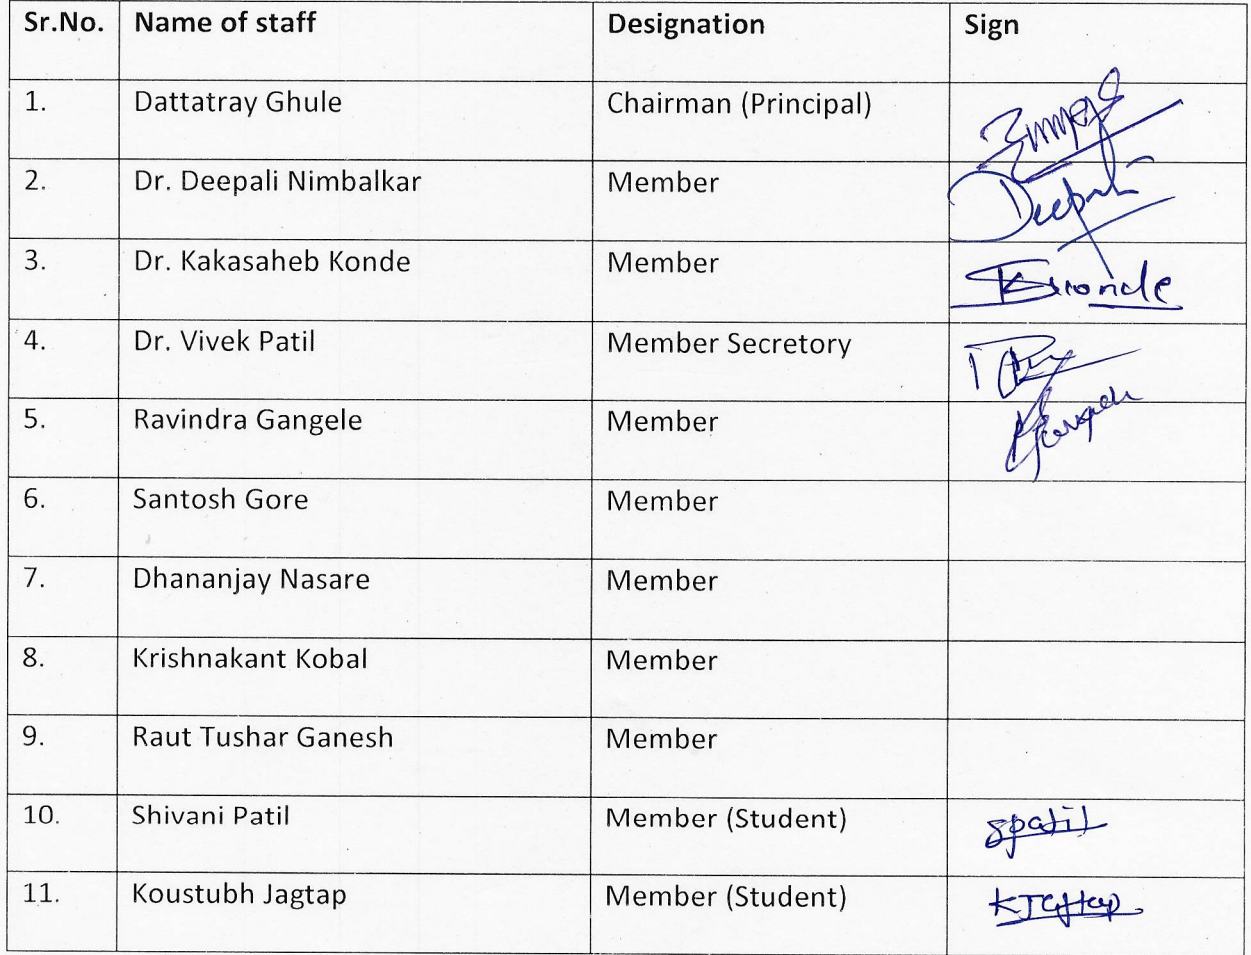 Sr.No. Name of staff Designation Sign
1. Dattatray Ghule Chairman (Principal)
2. Dr. Deepali Nimbalkar Member Deepali
3. Dr. Kakasaheb Konde Member
4. Dr. Vivek Patil Member Secretory
5. Ravindra Gangele Member
6. Santosh Gore Member
7. Dhananjay Nasare Member
8. Krishnakant Kobal Member
9. Raut Tushar Ganesh Member
10. Shivani Patil Member (Student) spatil
11. Koustubh Jagtap Member (Student)